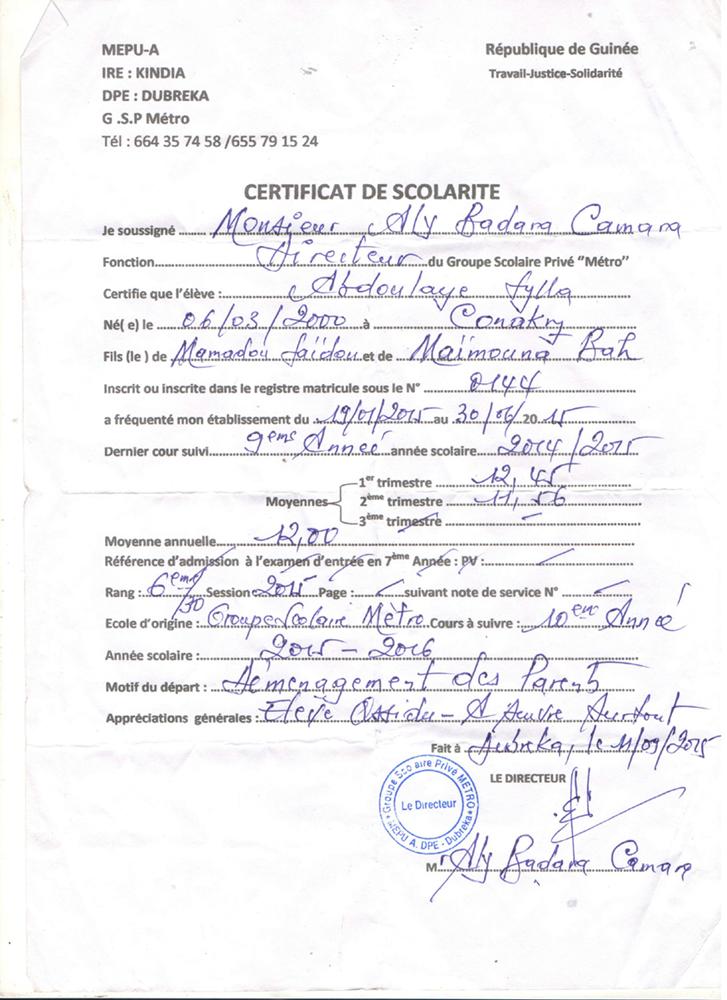 MEPU-A
République de Guinée
IRE : KINDIA
Travail-Justice-Solidarité
DPE : DUBREKA
G .S.P Métro
Tél : 664 35 74 58 /655 79 15 24
CERTIFICAT DE SCOLARITE
Je soussigné Monsieur Aly Badara Camara
Fonction Directeur du Groupe Scolaire Privé "Métro"
Certifie que l'élève : Abdoulaye Sylla
Né( e) le 06/03/2000 à Conakry
Fils (le ) de Mamadou Saïdou et de Maïmouna Bah
Inscrit ou inscrite dans le registre matricule sous le N° 0144
a fréquenté mon établissement du 19/01/2015 au 30/06/2015
Dernier cour suivi 9eme Année année scolaire 2014/2015
1er trimestre 12,45
Moyennes 2ème trimestre 11,56
3ème trimestre –
Moyenne annuelle 12,00
Référence d'admission à l'examen d'entrée en 7ème Année : PV :
Rang : 6eme/30 Session 2015 Page : suivant note de service N°
Ecole d'origine : Groupe Scolaire Métro Cours à suivre : 10eme Année
Année scolaire : 2015 – 2016
Motif du départ : Déménagement des Parents
Appréciations générales : Elève Assidu - A Suivre Surtout
Fait à Dubreka, le 11/09/2015
LE DIRECTEUR
Groupe Scolaire Privé METRO
Le Directeur
MEPU A. DPE - Dubreka
Mr Aly Badara Camara